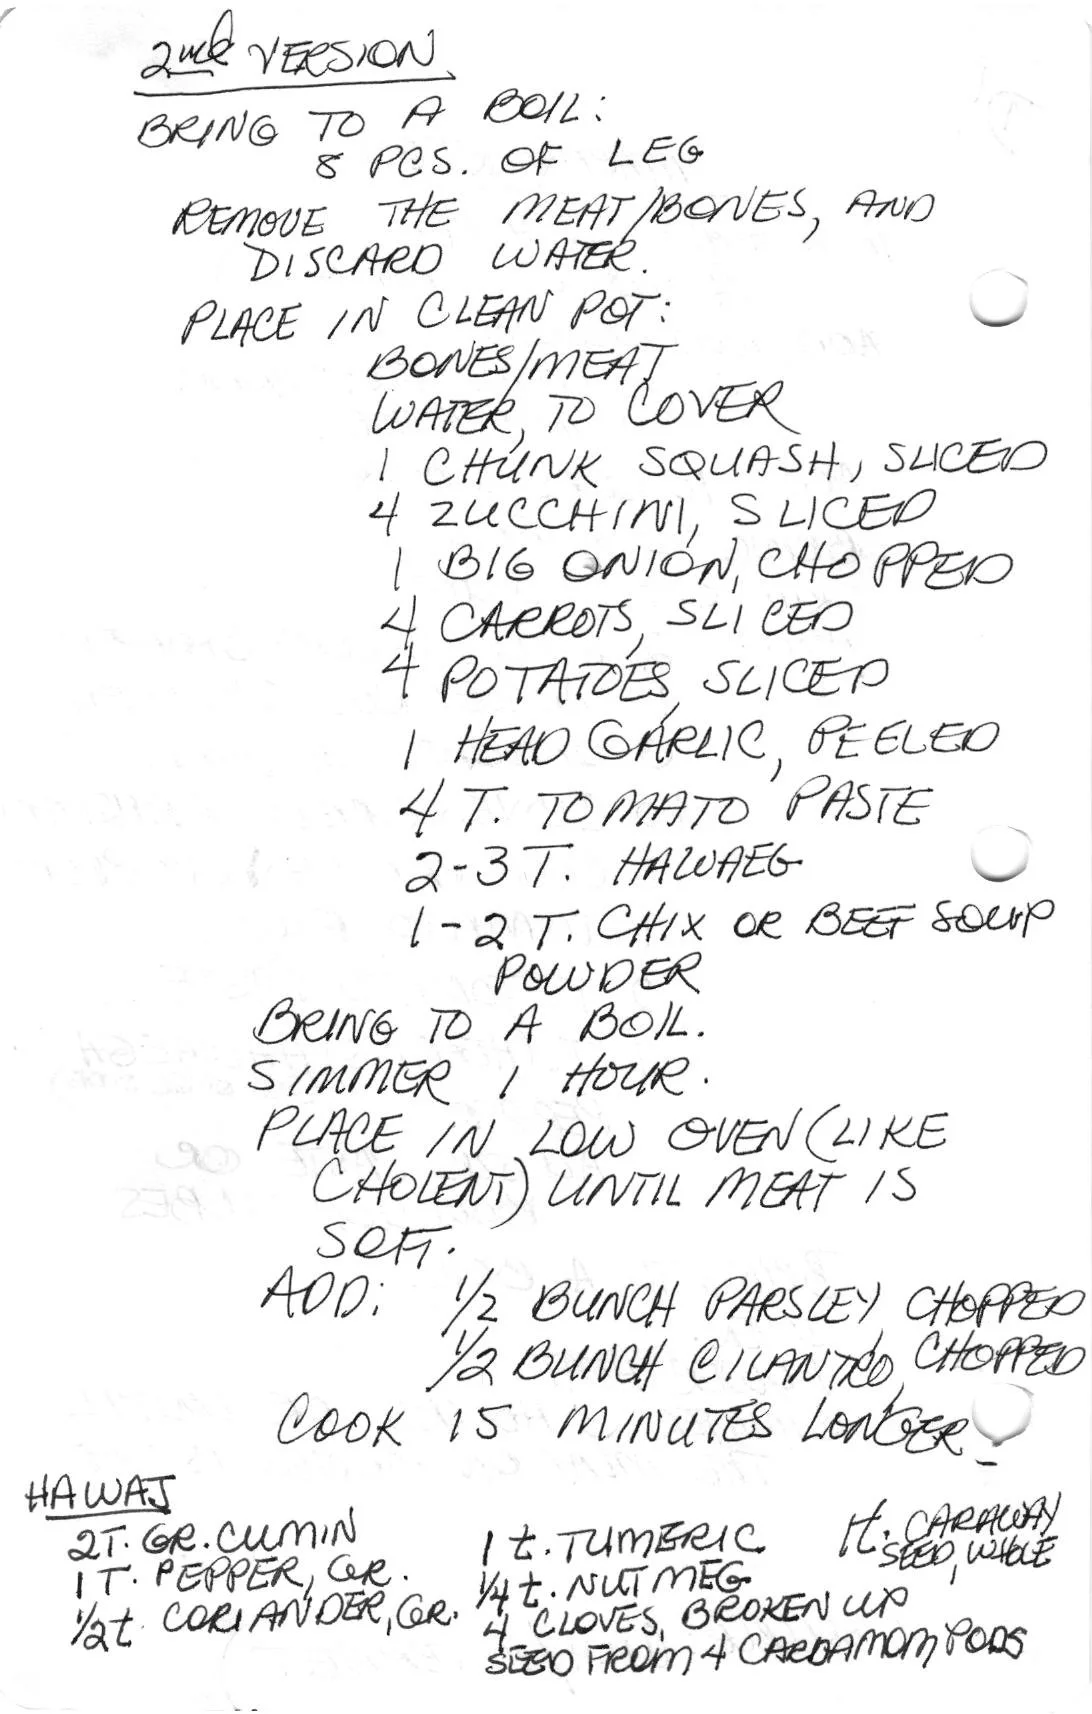 2nd VERSION
BRING TO A BOIL:
8 PCS. OF LEG
REMOVE THE MEAT/BONES, AND
DISCARD WATER.
PLACE IN CLEAN POT:
BONES/MEAT
WATER, TO COVER
1 CHUNK SQUASH, SLICED
4 ZUCCHINI, SLICED
1 BIG ONION, CHOPPED
4 CARROTS, SLICED
4 POTATOES, SLICED
1 HEAD GARLIC, PEELED
4 T. TOMATO PASTE
2-3 T. HAWAEG
1-2 T. CHIX OR BEEF SOUP
POWDER
BRING TO A BOIL.
SIMMER 1 HOUR.
PLACE IN LOW OVEN (LIKE
CHOLENT) UNTIL MEAT IS
SOFT.
ADD: 1/2 BUNCH PARSLEY, CHOPPED
1/2 BUNCH CILANTRO, CHOPPED
COOK 15 MINUTES LONGER.
HAWAJ
2T. GR. CUMIN
1 T. PEPPER, GR.
1/2 t. CORIANDER, GR.
1 t. TUMERIC
1/4 t. NUTMEG
4 CLOVES, BROKEN UP
SEED FROM 4 CARDAMOM PODS
1t. CARAWAY
SEED, WHOLE